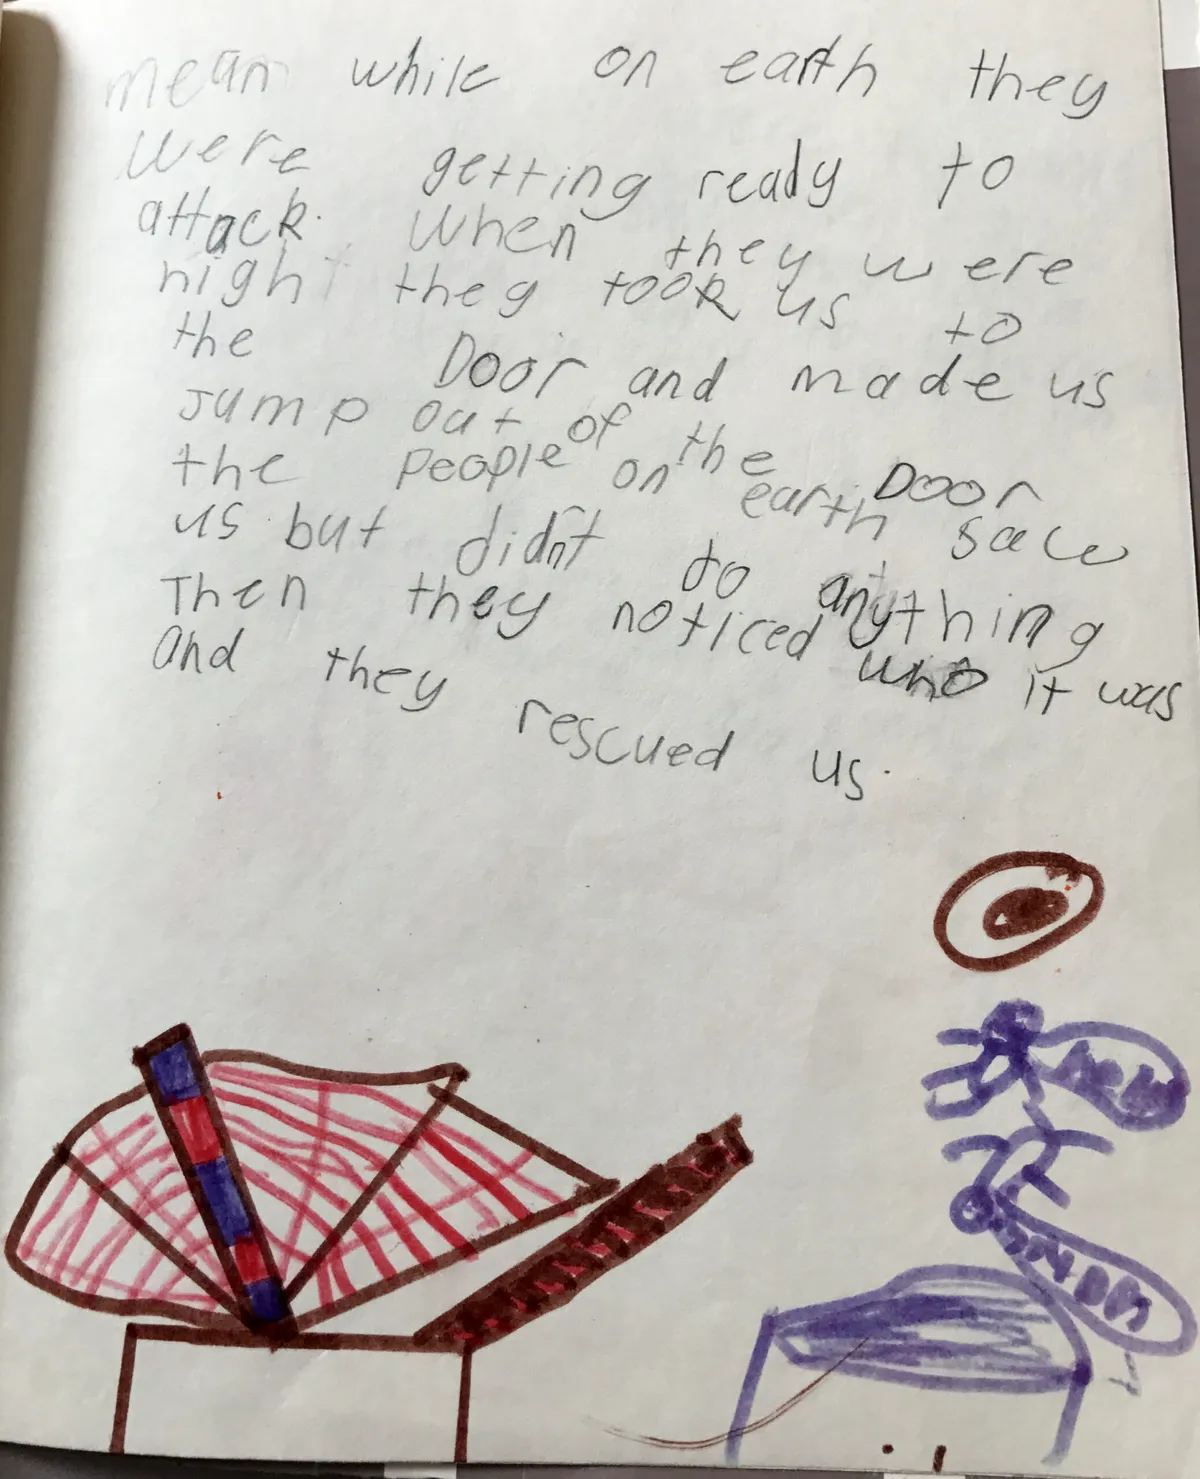 mean while on earth they
were getting ready to
attack. when they were
night they took us to
the Door and made us
Jump out of the Door
the people on earth saw
us but didn't do anything
Then they noticed who it was
and they rescued us.